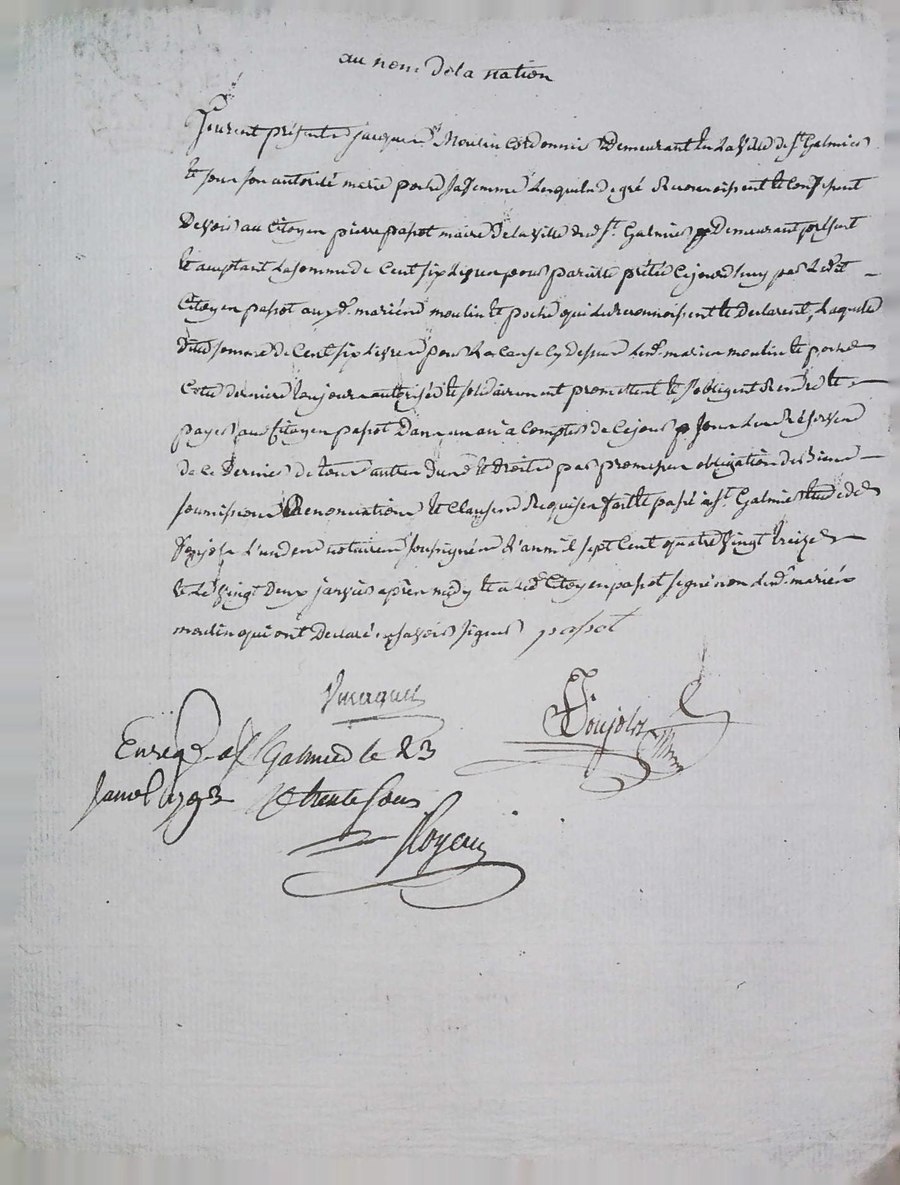 au nom de la nation
furent présents jacques Moulin Cordonnier Demeurant en la ville de St Galmier
et sous son autorité marie poche sa femme Lesquels de gré Reconnoissent et Confessent
Devoir au Citoyen pierre passot maire de la ville dud St Galmier y Demeurant présent
et acceptant La somme de Cent six Livres pour pareille prêtée Cejourd'huy par Ledit
Citoyen passot auxd. mariés moulin et poche qui Le Reconnoissent et Declarent, Laquelle
ditte somme de Cent six Livres pour La Cause Cy dessus Lesd. mariés moulin et poche
Cette derniere toujours authorisée et solidairement promettent et s'obligent Rendre et
payer aud Citoyen passot Dans un an a Compter de Ce jour sans Reserves
de Ce Dernier de tous autres dues et droits par promesses obligation de Biens
soumissions Renonciations et Clauses Requises fait et passé a St. Galmier Etude de
Donjolx L'un des notaires soussignés L'an mil sept Cent quatre vingt treize
et Le vingt deux janvier après midy et a Led. Citoyen passot signé non Lesd. mariés
moulin qui ont Declaré ne savoir signer passot
Donjolx
Enregé a St Galmier le 23
Janvr 1793 Rt trente sous